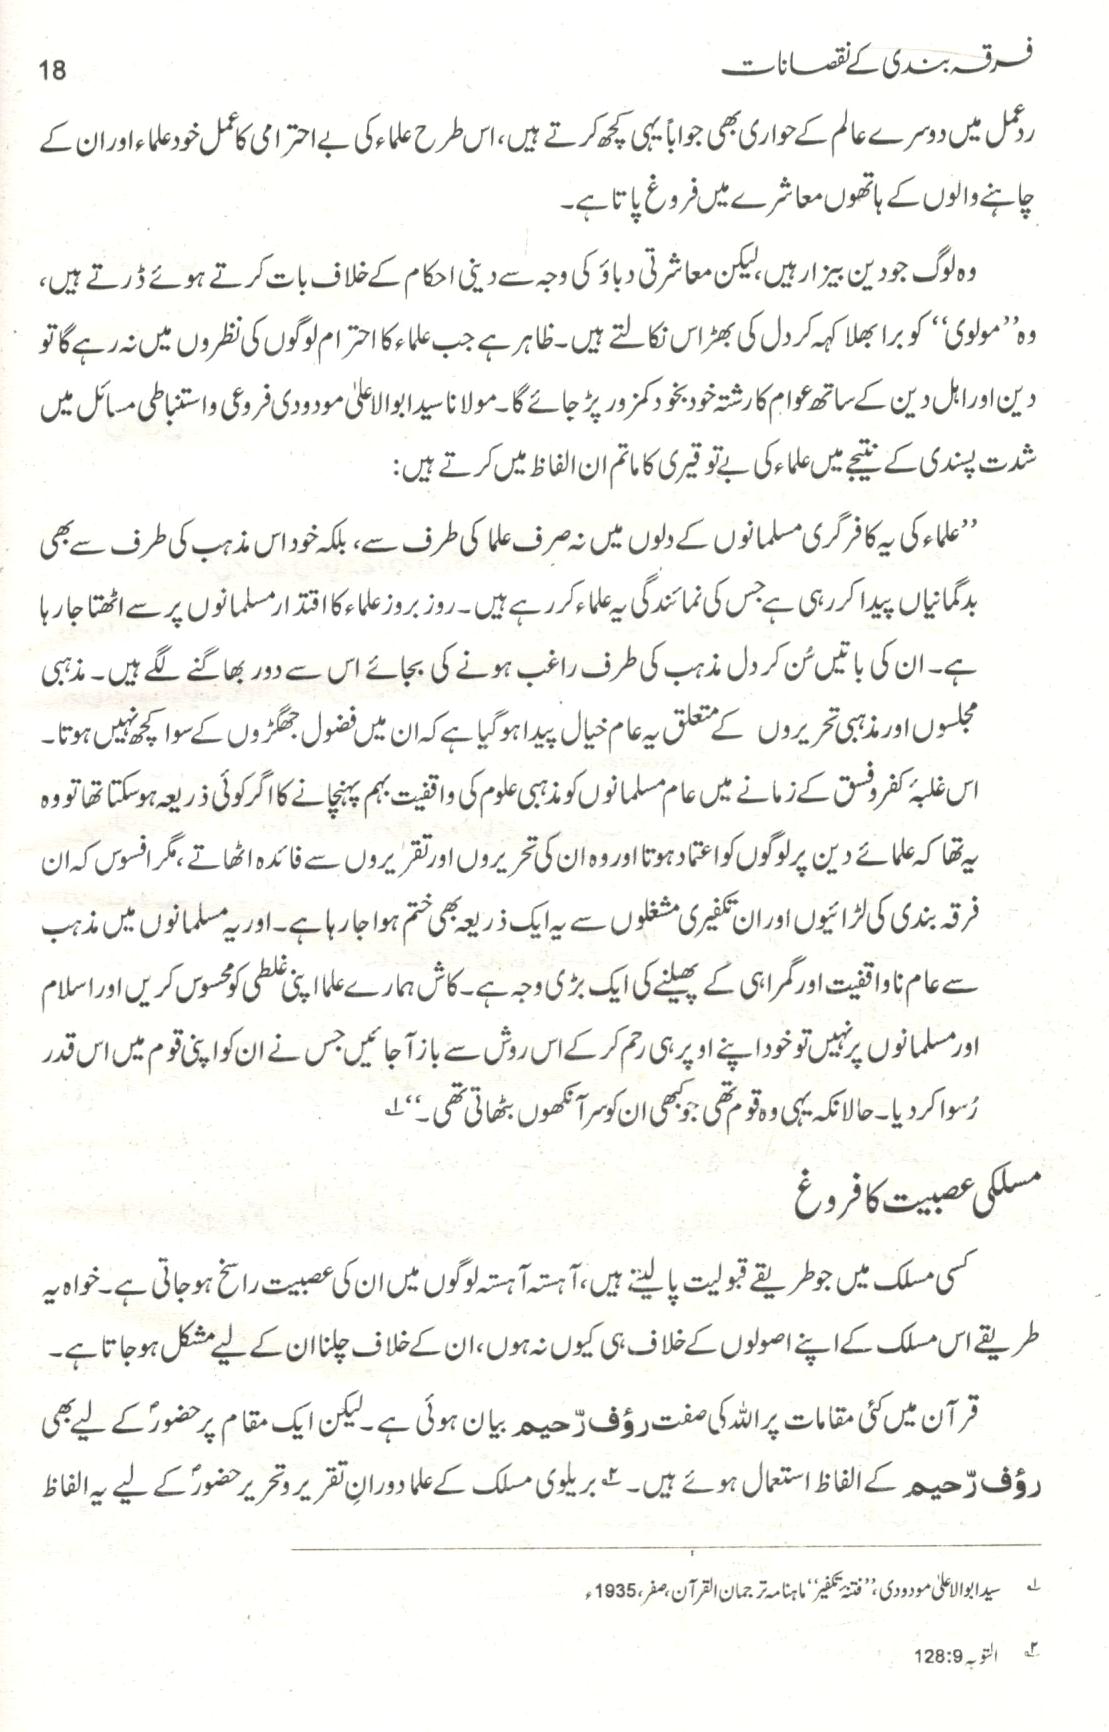 فرقہ بندی کے نقصانات
18
ردعمل میں دوسرے عالم کے حواری بھی جواباً یہی کچھ کرتے ہیں، اس طرح علماء کی بے احترامی کا عمل خود علماء اور ان کے
چاہنے والوں کے ہاتھوں معاشرے میں فروغ پاتا ہے۔
وہ لوگ جو دین بیزار ہیں، لیکن معاشرتی دباؤ کی وجہ سے دینی احکام کے خلاف بات کرتے ہوئے ڈرتے ہیں،
وہ ”مولوی“ کو برا بھلا کہہ کر دل کی بھڑاس نکالتے ہیں۔ ظاہر ہے جب علماء کا احترام لوگوں کی نظروں میں نہ رہے گا تو
دین اور اہل دین کے ساتھ عوام کا رشتہ خود بخود کمزور پڑ جائے گا۔ مولانا سید ابوالاعلیٰ مودودی فروعی و استنباطی مسائل میں
شدت پسندی کے نتیجے میں علماء کی بے توقیری کا ماتم ان الفاظ میں کرتے ہیں:
”علماء کی یہ کافر گری مسلمانوں کے دلوں میں نہ صرف علما کی طرف سے، بلکہ خود اس مذہب کی طرف سے بھی
بدگمانیاں پیدا کر رہی ہے جس کی نمائندگی یہ علماء کر رہے ہیں۔ روز بروز علماء کا اقتدار مسلمانوں پر سے اٹھتا جا رہا
ہے۔ ان کی باتیں سُن کر دل مذہب کی طرف راغب ہونے کی بجائے اس سے دور بھاگنے لگے ہیں۔ مذہبی
مجلسوں اور مذہبی تحریروں کے متعلق یہ عام خیال پیدا ہو گیا ہے کہ ان میں فضول جھگڑوں کے سوا کچھ نہیں ہوتا۔
اس غلبۂ کفر و فسق کے زمانے میں عام مسلمانوں کو مذہبی علوم کی واقفیت بہم پہنچانے کا اگر کوئی ذریعہ ہو سکتا تھا تو وہ
یہ تھا کہ علمائے دین پر لوگوں کو اعتماد ہوتا اور وہ ان کی تحریروں اور تقریروں سے فائدہ اٹھاتے، مگر افسوس کہ ان
فرقہ بندی کی لڑائیوں اور ان تکفیری مشغلوں سے یہ ایک ذریعہ بھی ختم ہوا جا رہا ہے۔ اور یہ مسلمانوں میں مذہب
سے عام ناواقفیت اور گمراہی کے پھیلنے کی ایک بڑی وجہ ہے۔ کاش ہمارے علما اپنی غلطی کو محسوس کریں اور اسلام
اور مسلمانوں پر نہیں تو خود اپنے اوپر ہی رحم کر کے اس روش سے باز آ جائیں جس نے ان کو اپنی قوم میں اس قدر
رُسوا کر دیا۔ حالانکہ یہی وہ قوم تھی جو کبھی ان کو سر آنکھوں بٹھاتی تھی۔“ ۱؎
مسلکی عصبیت کا فروغ
کسی مسلک میں جو طریقے قبولیت پا لیتے ہیں، آہستہ آہستہ لوگوں میں ان کی عصبیت راسخ ہو جاتی ہے۔ خواہ یہ
طریقے اس مسلک کے اپنے اصولوں کے خلاف ہی کیوں نہ ہوں، ان کے خلاف چلنا ان کے لیے مشکل ہو جاتا ہے۔
قرآن میں کئی مقامات پر اللہ کی صفت رؤف رّحیم بیان ہوئی ہے۔ لیکن ایک مقام پر حضورؐ کے لیے بھی
رؤف رّحیم کے الفاظ استعمال ہوئے ہیں۔ ۲؎ بریلوی مسلک کے علما دورانِ تقریر و تحریر حضورؐ کے لیے یہ الفاظ
۱؎ سید ابوالاعلیٰ مودودی، ”فتنۂ تکفیر“ ماہنامہ ترجمان القرآن، صفر، 1935ء
۲؎ التوبہ 128:9